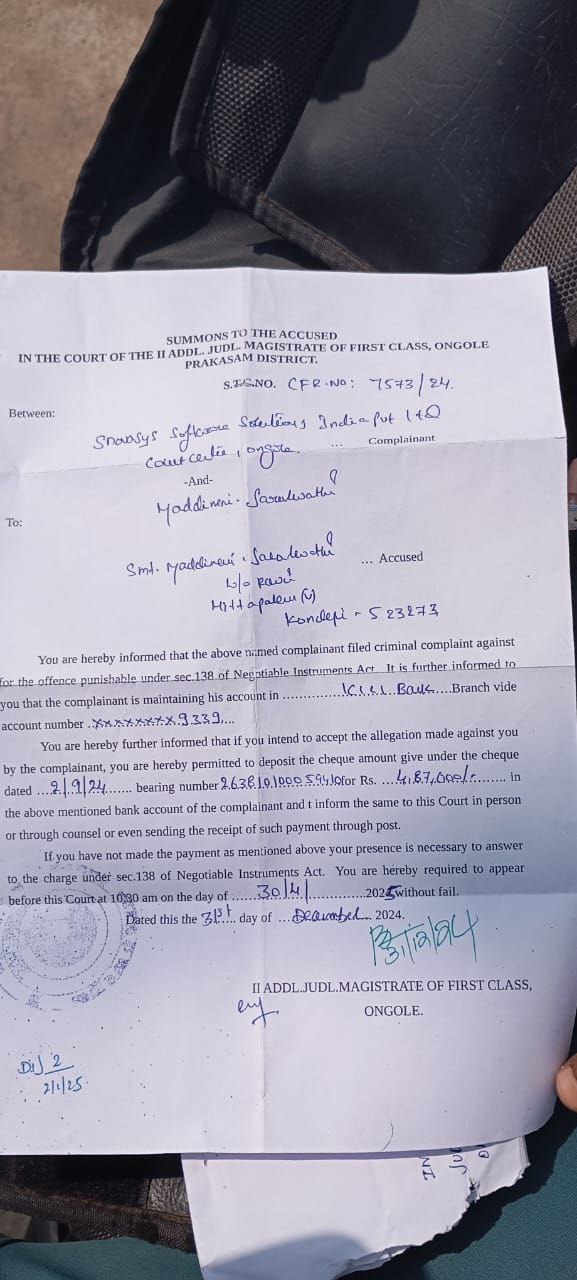 SUMMONS TO THE ACCUSED
IN THE COURT OF THE II ADDL. JUDL. MAGISTRATE OF FIRST CLASS, ONGOLE
PRAKASAM DISTRICT.
S.T.C.NO. CFR.NO: 7573/24.
Between:
Software Solutions India Pvt Ltd
... Complainant
, ongole.
-And-
Maddineni. Saraswathi
To:
Smt. Maddineni. Saraswathi
... Accused
W/o Ravi
Mittapalem (V)
Kondepi - 523273
You are hereby informed that the above named complainant filed criminal complaint against
for the offence punishable under sec.138 of Negotiable Instruments Act. It is further informed to
you that the complainant is maintaining his account in .............. Bank....Branch vide
account number .xxxxxxxx9339....
You are hereby further informed that if you intend to accept the allegation made against you
by the complainant, you are hereby permitted to deposit the cheque amount give under the cheque
dated ...2/9/24...... bearing number for Rs. ...4,87,000/-........ in
the above mentioned bank account of the complainant and t inform the same to this Court in person
or through counsel or even sending the receipt of such payment through post.
If you have not made the payment as mentioned above your presence is necessary to answer
to the charge under sec.138 of Negotiable Instruments Act. You are hereby required to appear
before this Court at 10.30 am on the day of ......30/4/..............2025 without fail.
Dated this the 31st.... day of ...December... 2024.
31/12/24
II ADDL.JUDL.MAGISTRATE OF FIRST CLASS,
ONGOLE.
2
2/1/25.